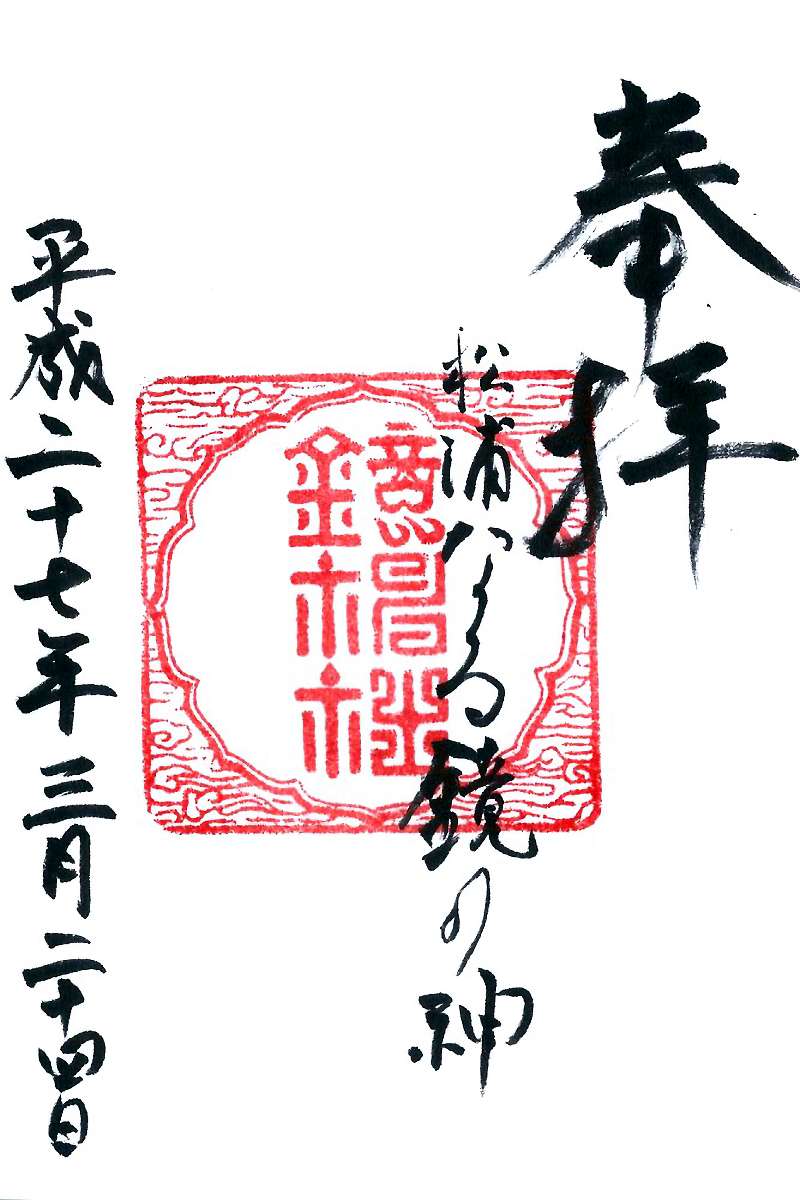 奉拝
松浦なる鏡の神
鏡神社
平成二十七年三月二十四日